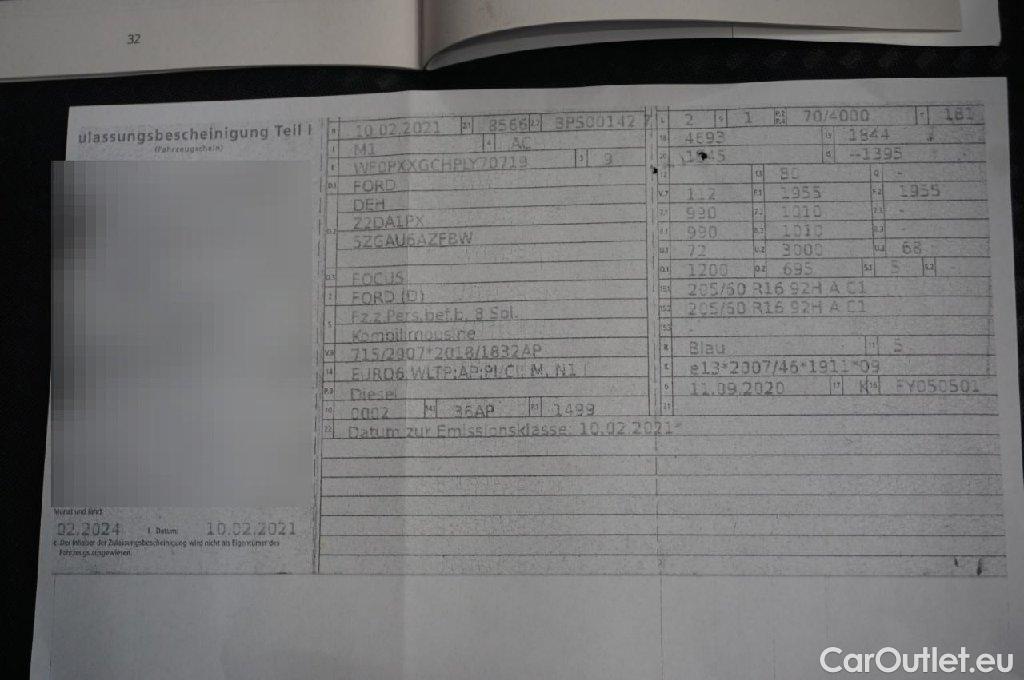 32
ulassungsbescheinigung Teil I
(Fahrzeugschein)
B 10.02.2021 2.1 8566 2.2 BPS00142 7
J M1 4 AC
E WF0PXXGCHPLY70719 3 9
D.1 FORD
DEH
D.2 Z2DA1PX
5ZGAU6AZFBW
D.3 FOCUS
2 FORD (D)
5 Fz.z.Pers.bef.b. 8 Spl.
Kombilimousine
V.9 715/2007*2018/1832AP
14 EURO6 WLTP;AP;PI/CI; M, N1 I
P.3 Diesel
10 0002 14.1 36AP P.1 1499
22 Datum zur Emissionsklasse: 10.02.2021*
L 2 9 1 P.2 P.4 70/4000 T 181
18 4693 19 1844
20 G -1395
12 13 80 Q -
V.7 112 F.1 1955 F.2 1955
7.1 990 7.2 1010 7.3 -
8.1 990 8.2 1010 8.3 -
U.1 72 U.2 3000 U.3 68
O.1 1200 O.2 695 S.1 5 S.2 -
15.1 205/60 R16 92H A C1
15.2 205/60 R16 92H A C1
15.3 -
R Blau 11 5
K e13*2007/46*1911*09
6 11.09.2020 17 K 16 FY050501
21
Monat und Jahr)
02.2024 I. Datum: 10.02.2021
c Der Inhaber der Zulassungsbescheinigung wird nicht als Eigentümer des
Fahrzeugs ausgewiesen.
CarOutlet.eu